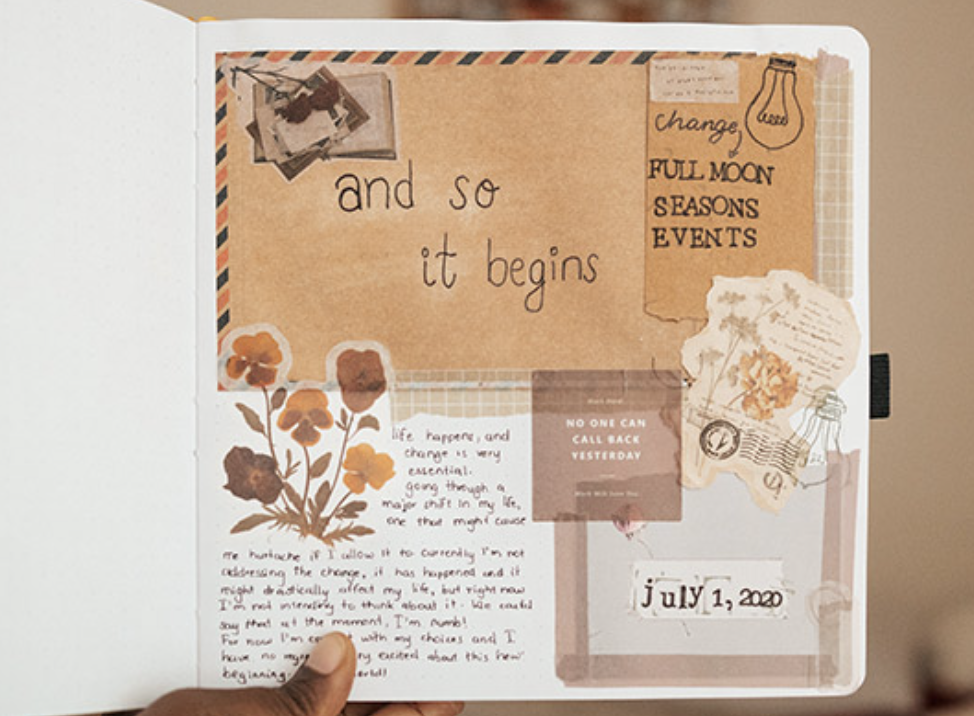 and so
it begins
change,
FULL MOON
SEASONS
EVENTS
NO ONE CAN
CALL BACK
YESTERDAY
life happens, and
change is very
essential.
going through a
major shift in my life,
one that might cause
me hurtache if I allow it to currently I'm not
addressing the change, it has happened and it
might drastically affect my life, but right now
I'm not intending to think about it. We could
say that at the moment, I'm numb!
For now I'm with my choices and I
have no excited about this new
beginning.
july 1, 2020